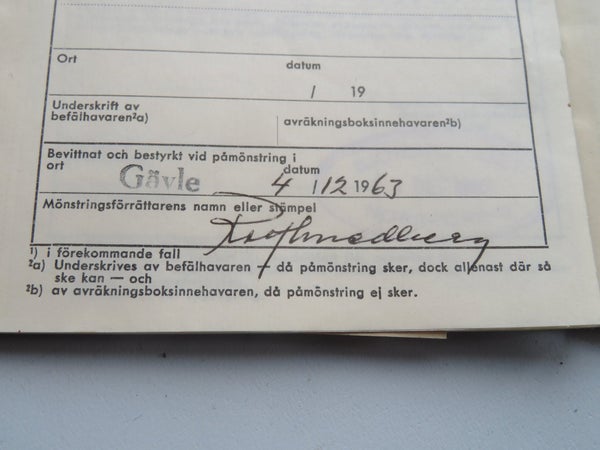 Ort datum
/ 19
Underskrift av
befälhavaren²a) avräkningsboksinnehavaren²b)
Bevittnat och bestyrkt vid påmönstring i
ort datum
Gävle 4 / 12 1963
Mönstringsförrättarens namn eller stämpel
¹) i förekommande fall
²a) Underskrives av befälhavaren — då påmönstring sker, dock allenast där så
ske kan — och
²b) av avräkningsboksinnehavaren, då påmönstring ej sker.